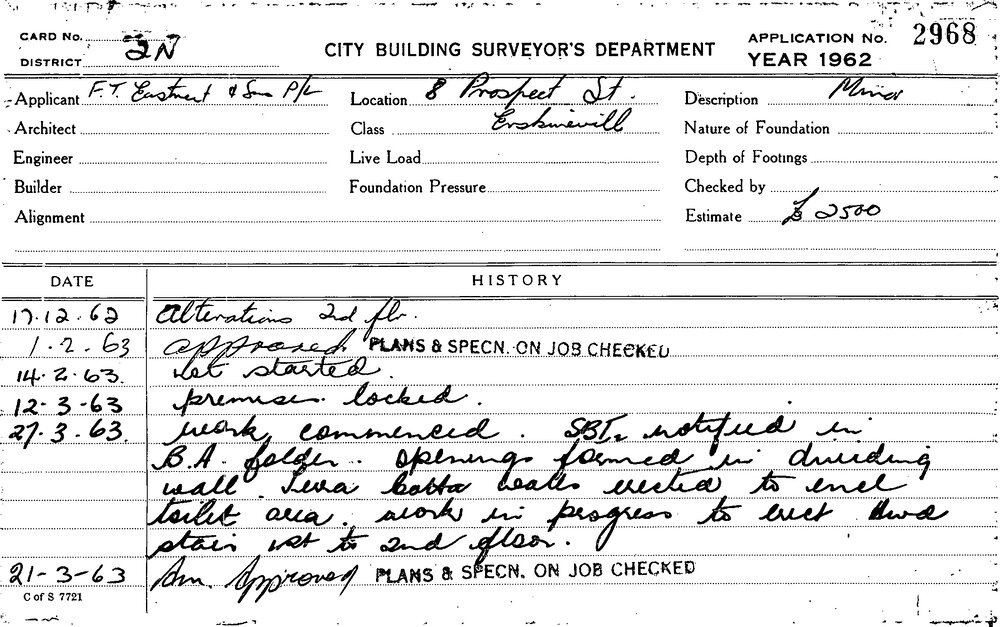 CARD No.
DISTRICT 2N
CITY BUILDING SURVEYOR'S DEPARTMENT
APPLICATION No. 2968
YEAR 1962
Applicant F.T. Eastment & Sons P/L
Location 8 Prospect St.
Description Minor
Architect
Class Erskinevill
Nature of Foundation
Engineer
Live Load
Depth of Footings
Builder
Foundation Pressure
Checked by
Alignment
Estimate £ 2500
DATE HISTORY
17.12.62 Alterations 2nd flr.
1.2.63 approved PLANS & SPECN. ON JOB CHECKED
14.2.63. not started.
12-3-63 premises locked.
27.3.63. work commenced. notified in
B.A. folder. openings formed in dividing
wall. Terra cotta walls erected to encl
toilet area. work in progress to erect hwd
stair to 2nd floor.
21-3-63 Am. Approved PLANS & SPECN. ON JOB CHECKED
C of S 7721